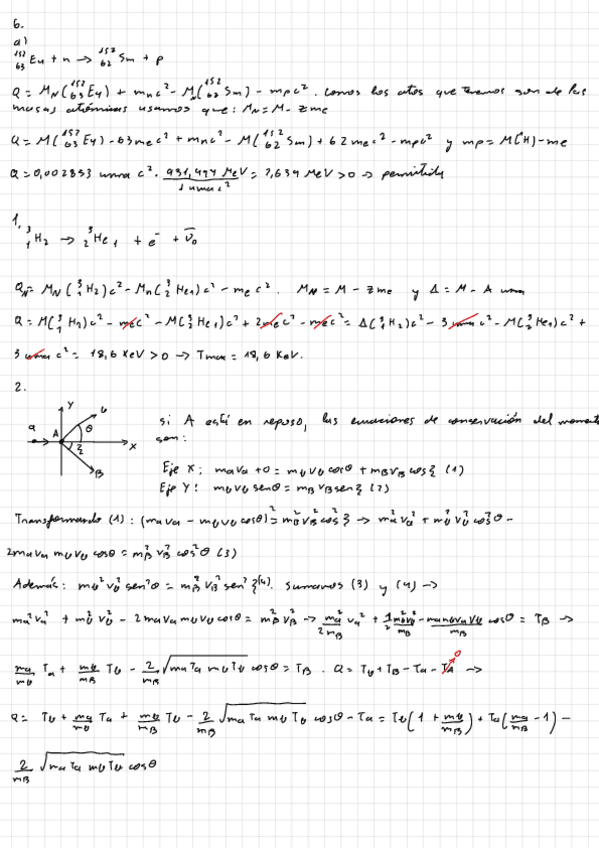 6.
a)
¹⁵²₆₃Eu + n → ¹⁵²₆₂Sm + p
Q = M_N(¹⁵²₆₃Eu) + mnc² - M_N(¹⁵²₆₂Sm) - mpc². Como los datos que tenemos son de las
masas atómicas usamos que: M_N = M - Zme
Q = M(¹⁵²₆₃Eu) - 63mec² + mnc² - M(¹⁵²₆₂Sm) + 62mec² - mpc² y mp = M(¹H) - me
Q = 0,002853 uma c² · 931,494 MeV / 1 uma c² = 2,634 MeV > 0 → permitida
1.
³₁H₂ → ³₂He₁ + e⁻ + ν̄₀
Q_N = M_N(³₁H₂)c² - M_N(³₂He₁)c² - mec². M_N = M - Zme y Δ = M - A uma
Q = M(³₁H₂)c² - mec² - M(³₂He₁)c² + 2mec² - mec² = Δ(³₁H₂)c² - 3 uma c² - M(³₂He₁)c² +
3 uma c² = 18,6 KeV > 0 → Tmax = 18,6 KeV.
2.
Y
b
a
A
θ
ξ
X
B
si A está en reposo, las ecuaciones de conservación del momento
son:
Eje X: mava + 0 = mbvb cosθ + mBvB cosξ (1)
Eje Y: mbvb senθ = mBvB senξ (2)
Transformando (1): (mava - mbvb cosθ)² = m²Bv²B cos²ξ → m²av²a + m²bv²b cos²θ -
2mava mbvb cosθ = m²B v²B cos²θ (3)
Además: mb²vb² sen²θ = m²B v²B sen²ξ (4). Sumamos (3) y (4) →
ma²va² + m²b v²b - 2mava mbvb cosθ = m²B v²B → ma²/2mB va² + 1/2 m²bv²b/mB - mavambvb/mB cosθ = TB →
ma/mb Ta + mb/mB Tb - 2/mB √(maTa mbTb) cosθ = TB. Q = Tb + TB - Ta - TA 0 →
Q = Tb + ma/mb Ta + mb/mB Tb - 2/mB √(maTa mbTb) cosθ - Ta = Tb(1 + mb/mB) + Ta(ma/mB - 1) -
2/mB √(maTa mbTb) cosθ